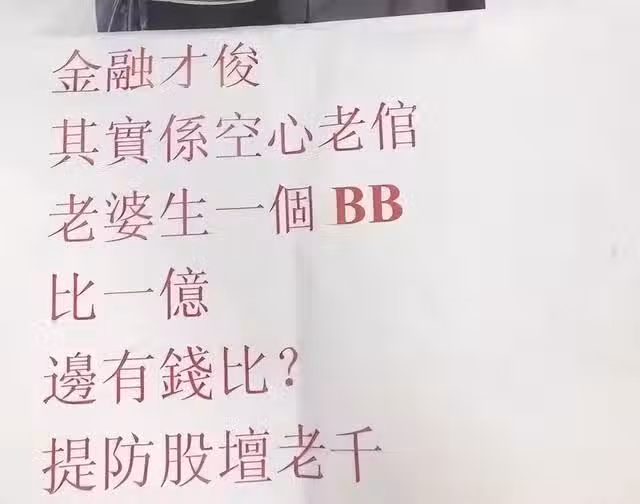 金融才俊
其實係空心老倌
老婆生一個 BB
比一億
邊有錢比?
提防股壇老千